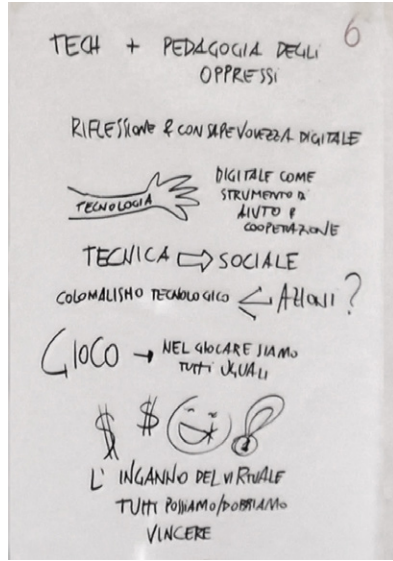 6
TECH + PEDAGOGIA DEGLI
OPPRESSI
RIFLESSIONE & CONSAPEVOLEZZA DIGITALE
TECNOLOGIA
DIGITALE COME
STRUMENTO DI
AIUTO E
COOPERAZIONE
TECNICA ⇒ SOCIALE
COLONIALISMO TECNOLOGICO < AZIONI?
GIOCO → NEL GIOCARE SIAMO
TUTTI UGUALI
$ $
L' INGANNO DEL VIRTUALE
TUTTI POSSIAMO/DOBBIAMO
VINCERE